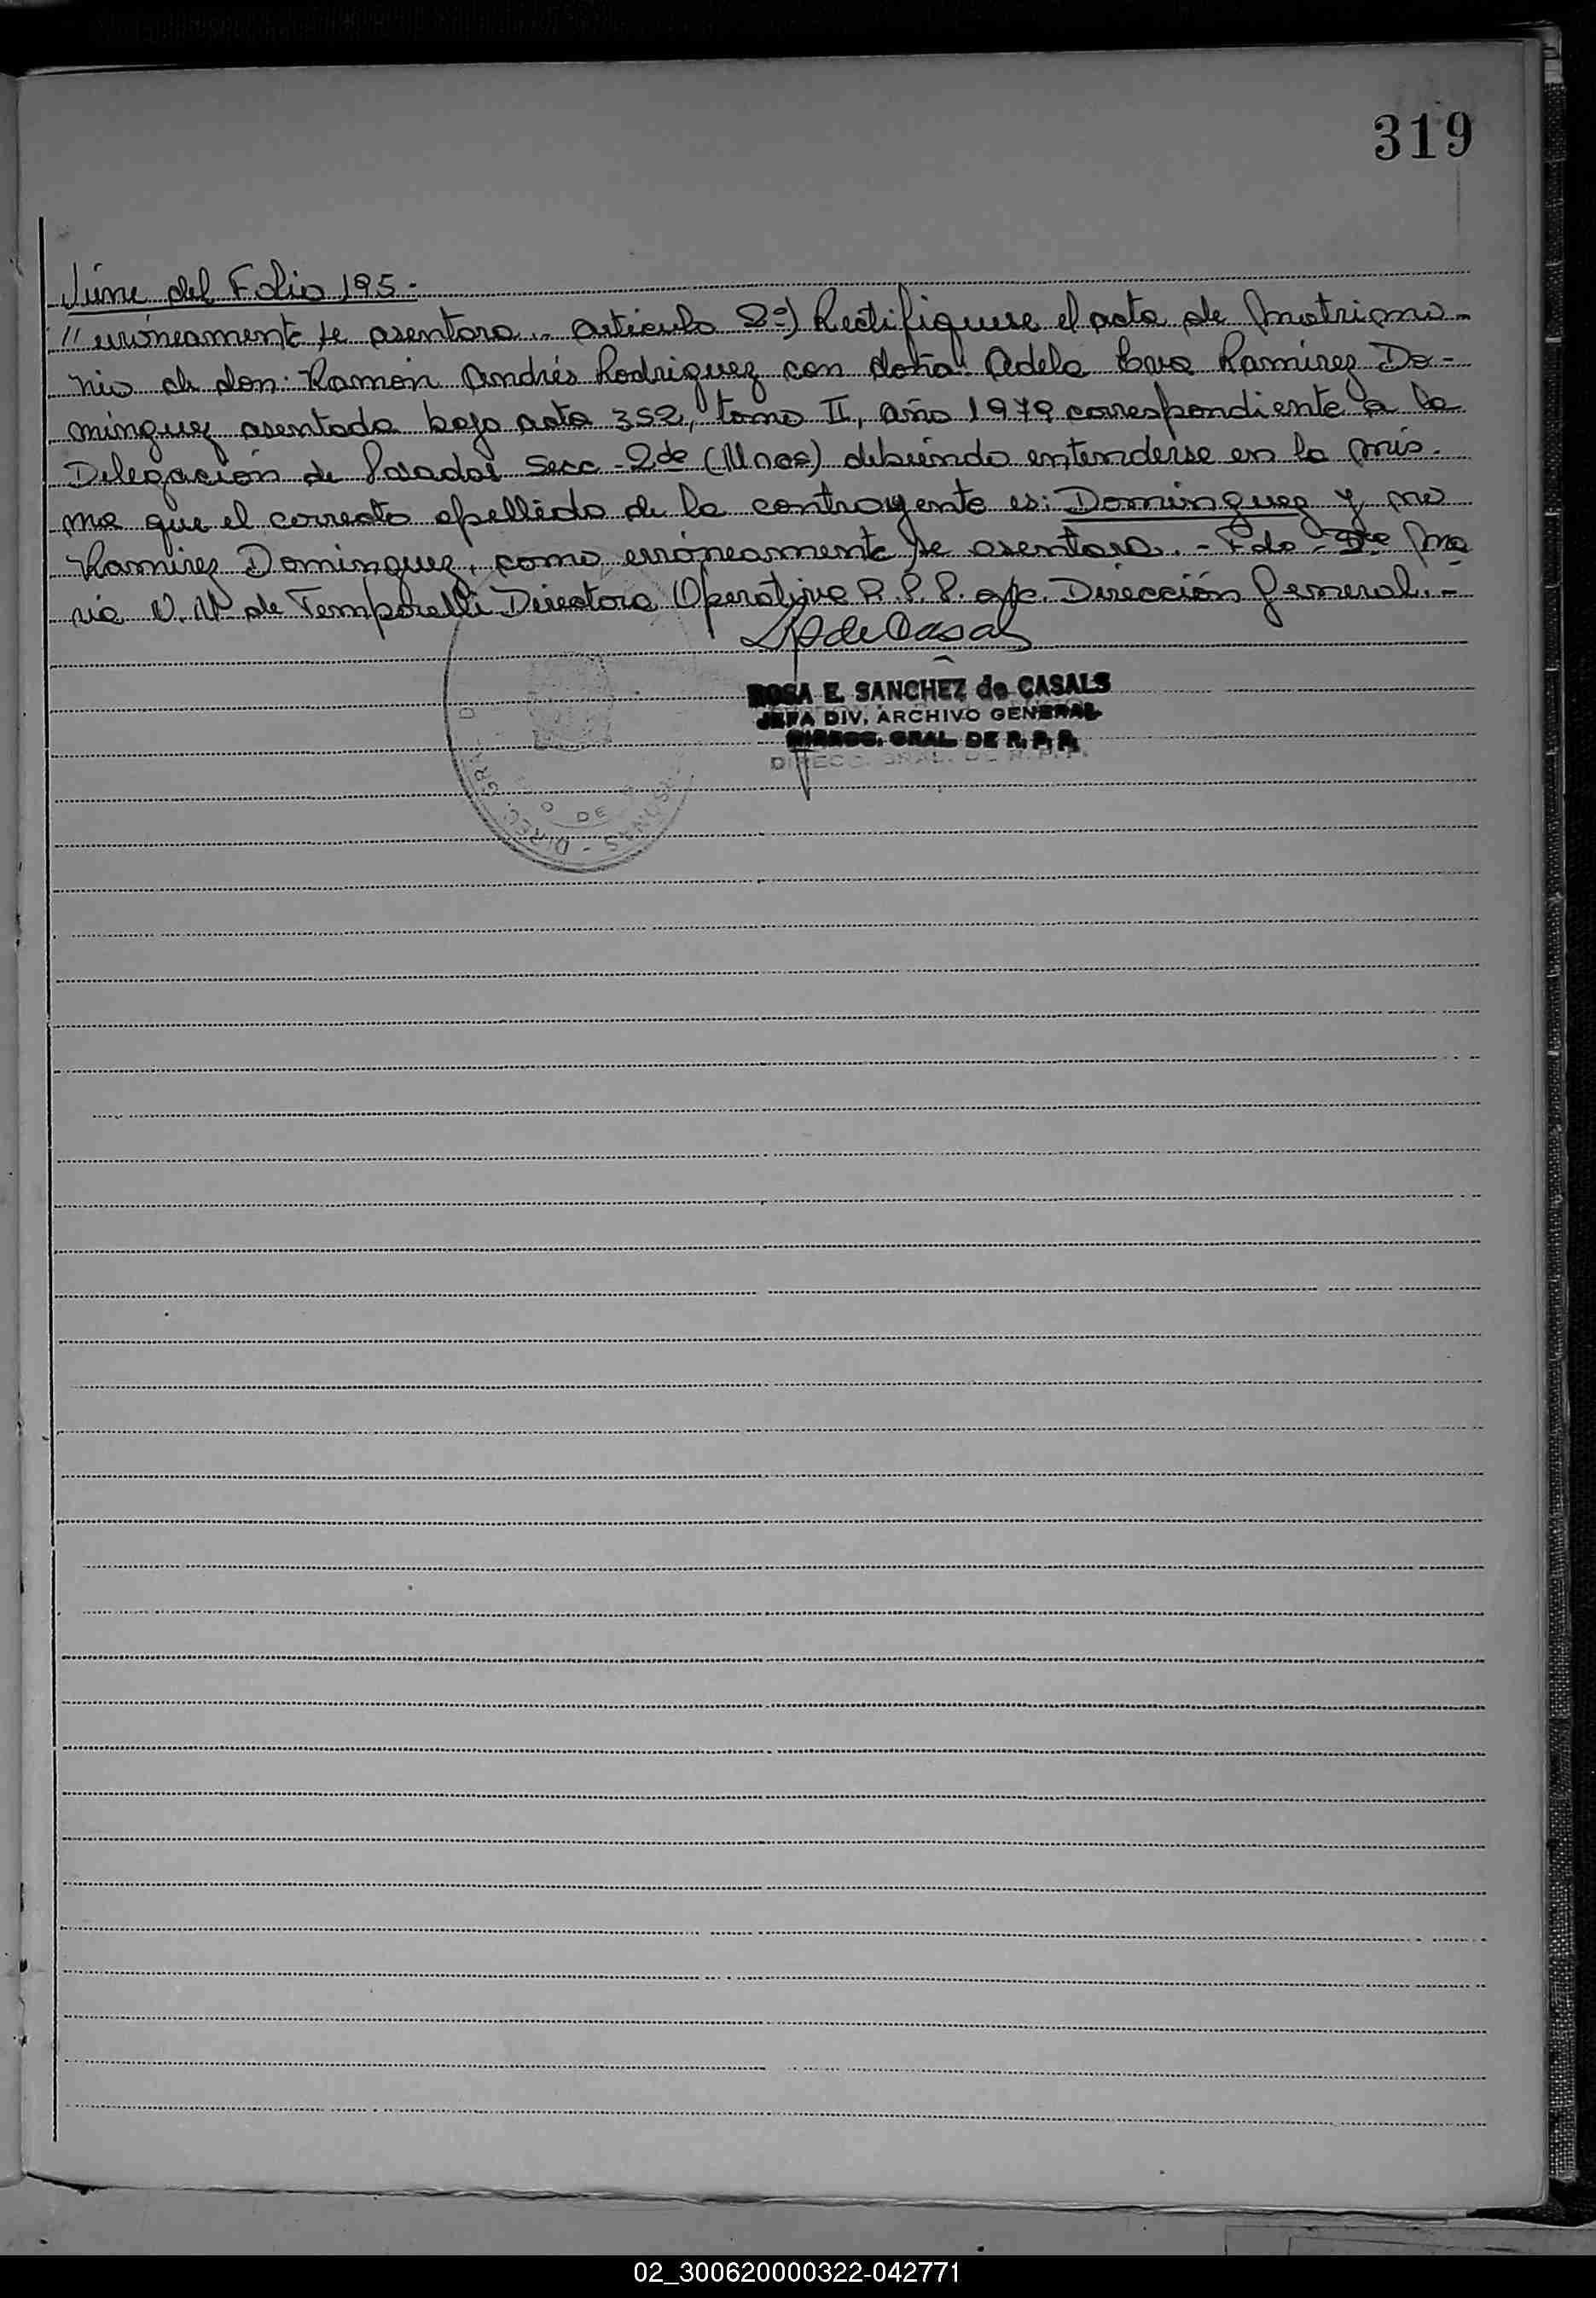 319
Viene del Folio 195.-
// erróneamente se asentara.- Artículo 2º) Rectifiquese el acta de Matrimo-
nio de don: Ramón Andrés Rodriguez con doña: Adela Eva Ramirez Do-
minguez asentada bajo acta 352, tomo II, año 1979 correspondiente a la
Delegación de Posadas Secc - 2da (Mnes) debiendo entenderse en la mis-
ma que el correcto apellido de la contrayente es: Dominguez y no
Ramirez Dominguez, como erróneamente se asentara. - Fdo - Dra Ma
ria V. de Temporelli Directora Operativa R.P.P. a/c. Dirección General. -
ROSA E. SANCHEZ de CASALS
JEFA DIV. ARCHIVO GENERAL
DIRECC. GRAL. DE R. P. P.
02_300620000322-042771